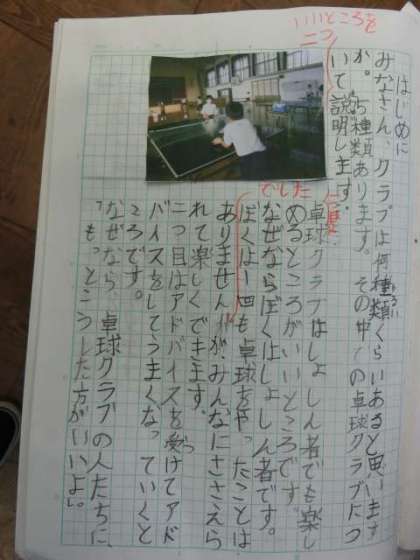 はじめに
みなさん、クラブは何種類くらいあると思いますか。
五種類あります。その中での卓球クラブにつ
いいところを
二つ
いて説明します。
一つ目
卓球クラブはしょしん者でも楽し
めるところがいいところです。
なぜならぼくはしょしん者です。
でした
ぼくは一回も卓球をやったことは
ありませんが、みんなにささえら
れて楽しくできます。
二つ目はアドバイスを受けてアド
バイスをしてうまくなっていくと
ころです。
なぜなら、卓球クラブの人たちに、
「もっとこうした方がいいよ」。